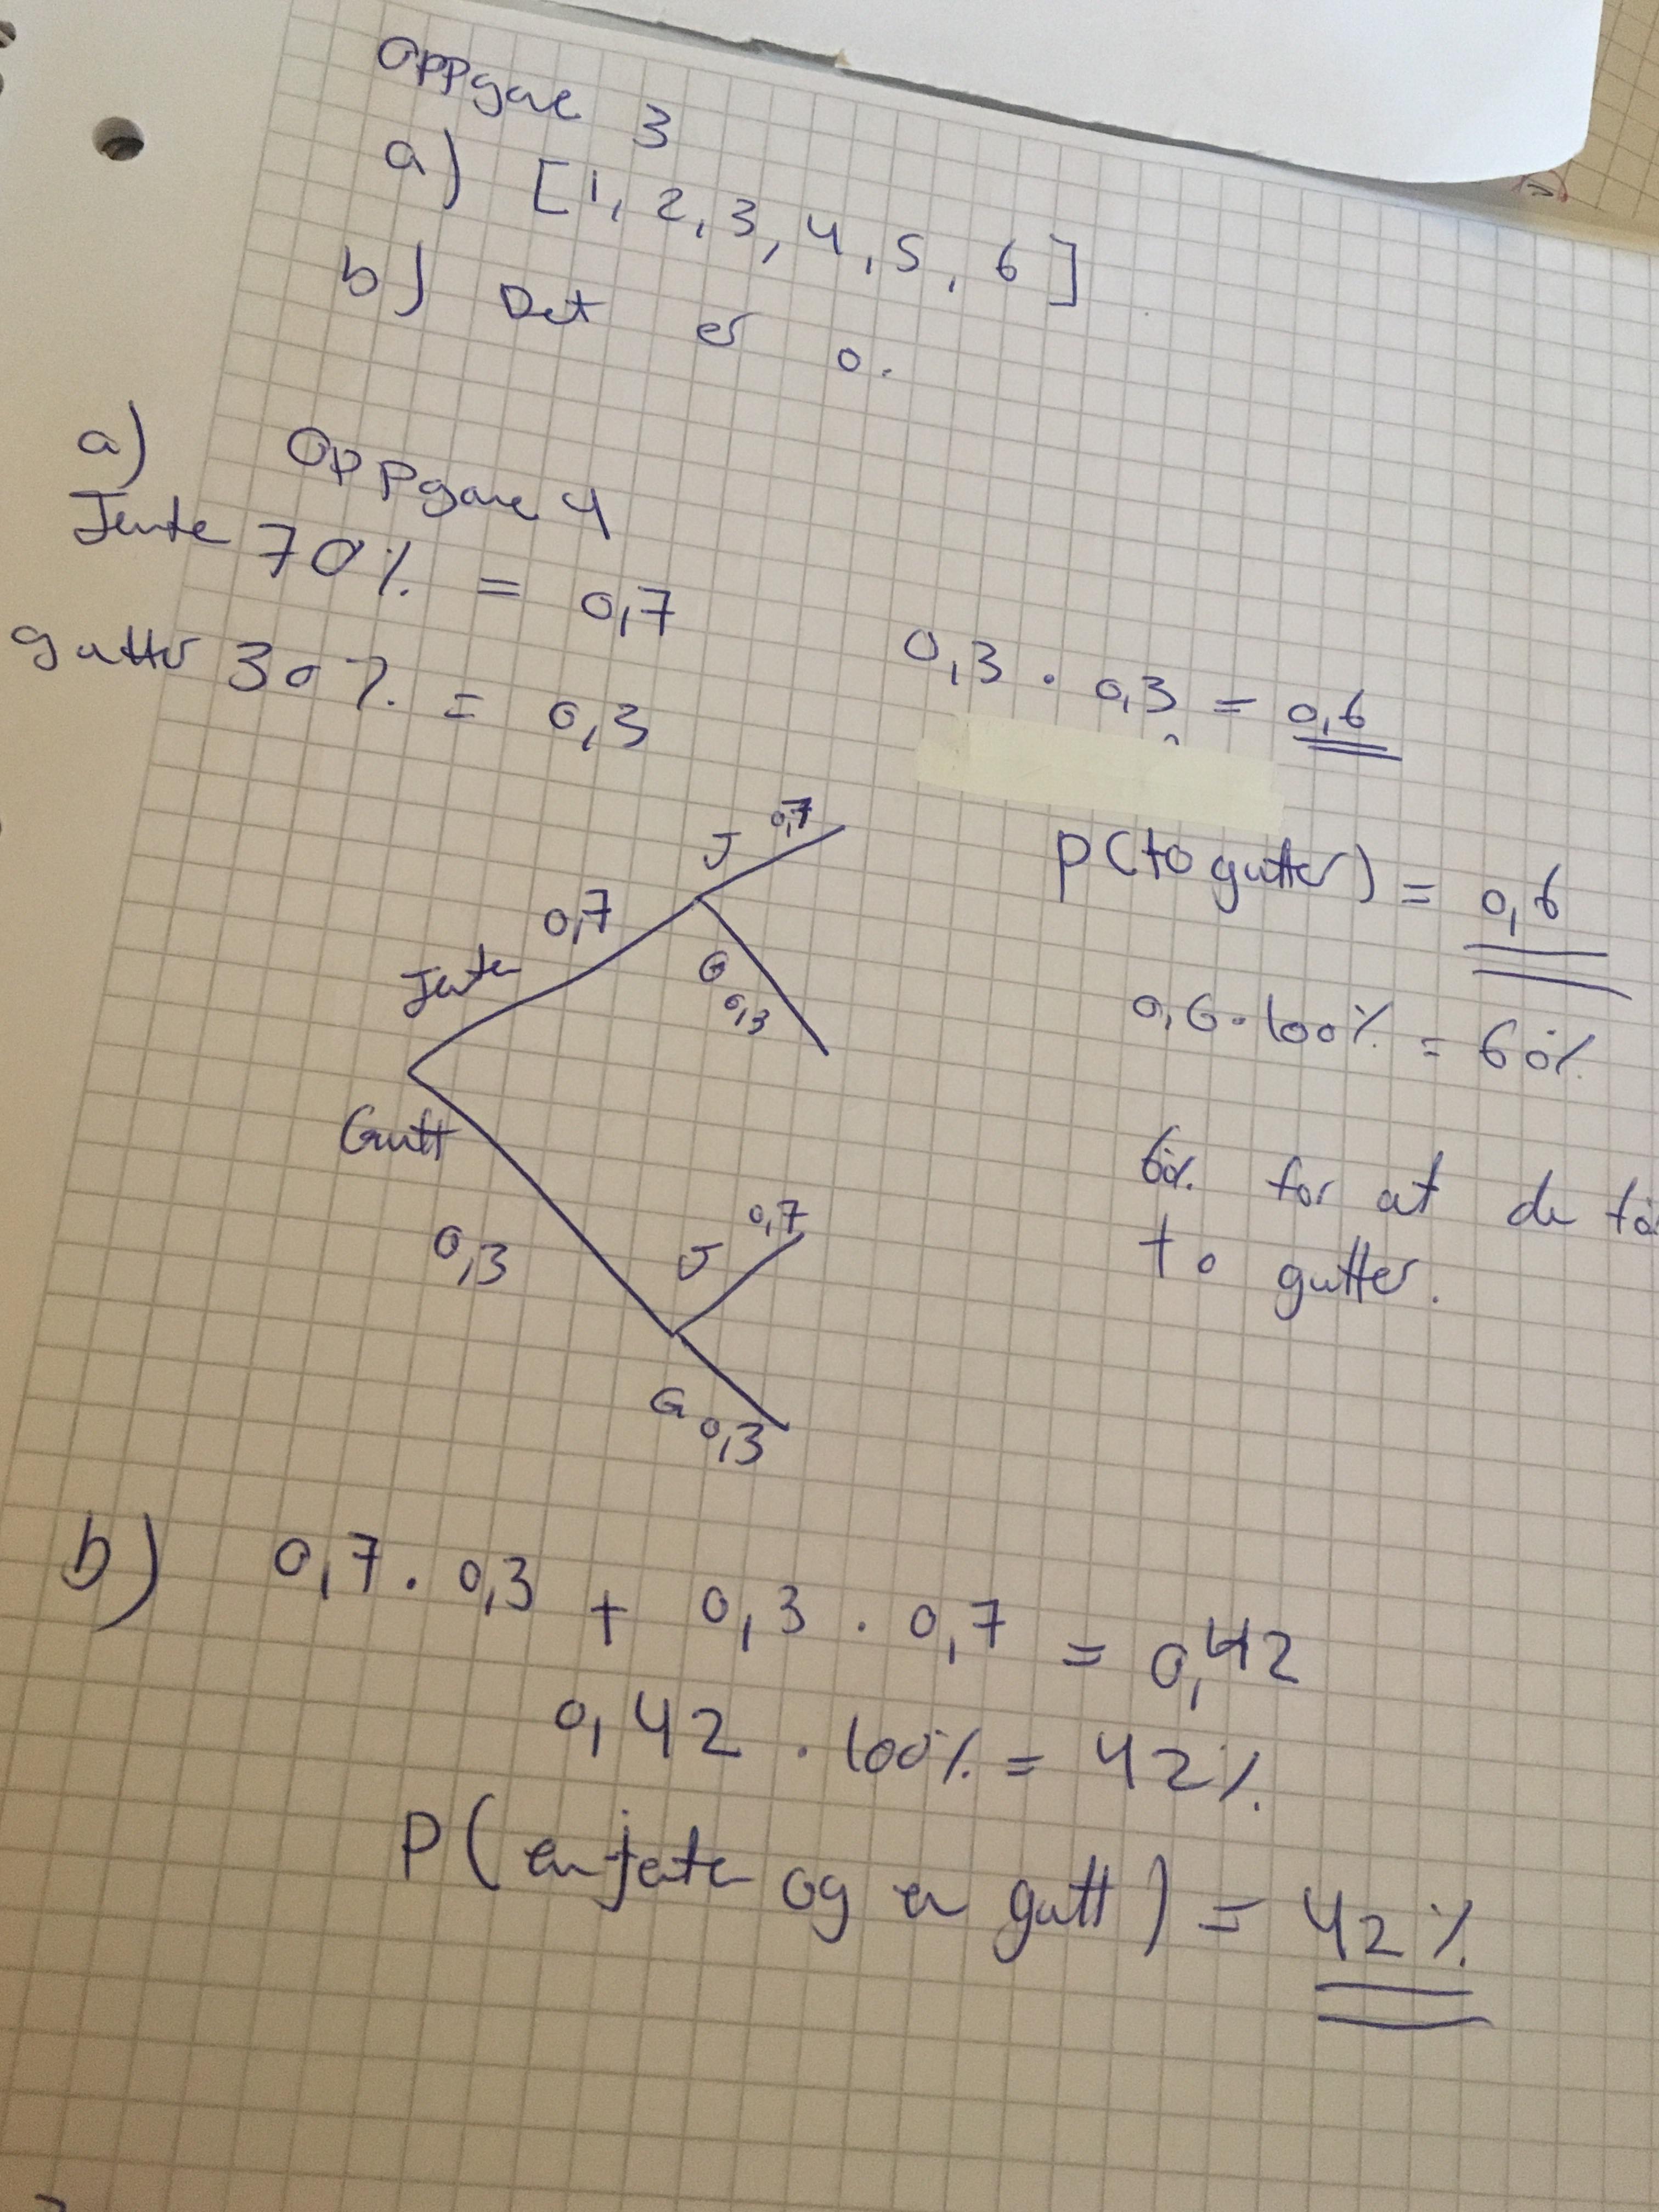 Oppgave 3
a) [1, 2, 3, 4, 5, 6]
b) Det er 0.
a) Oppgave 4
Jente 70% = 0,7
gutter 30% = 0,3
0,3 · 0,3 = 0,6
P(to gutter) = 0,6
0,6 · 100% = 60%
60% for at de får
to gutter.
J 0,7
0,7
Jente
G
0,3
Gutt
0,3
J 0,7
G 0,3
b) 0,7 · 0,3 + 0,3 · 0,7 = 0,42
0,42 · 100% = 42%
P(en jente og en gutt) = 42%